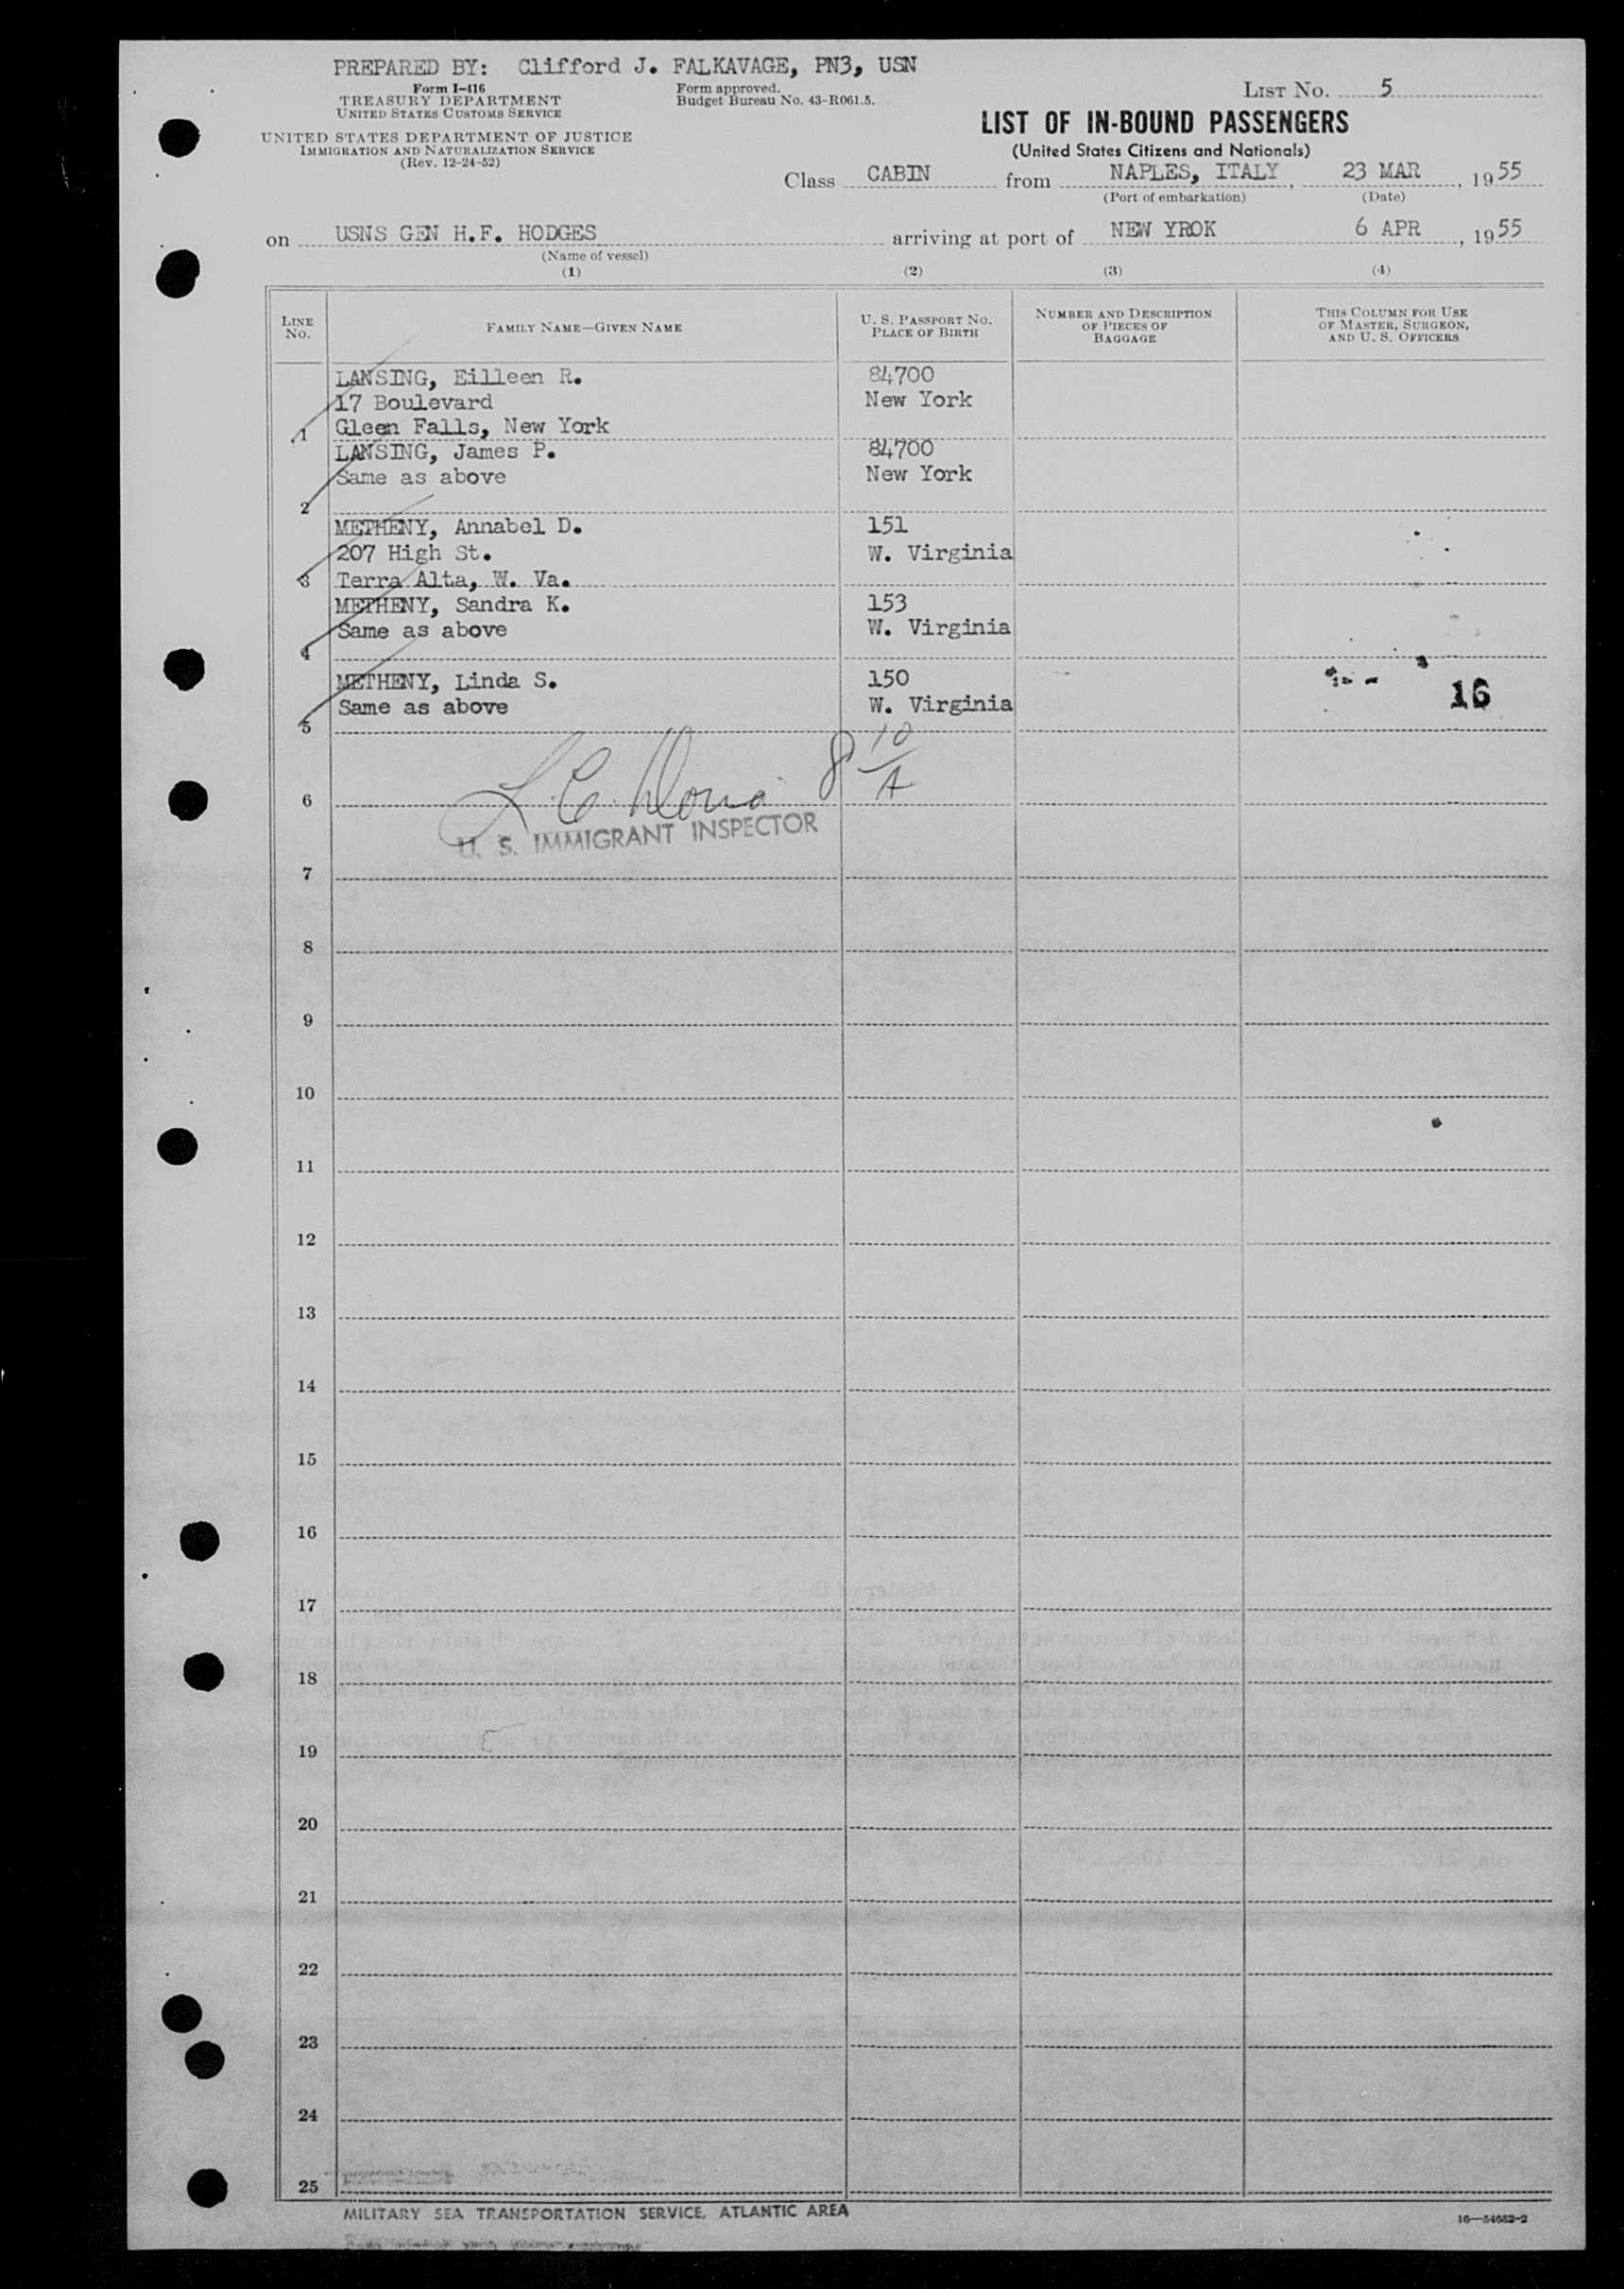 PREPARED BY: Clifford J. FALKAVAGE, PN3, USN
Form I-416
TREASURY DEPARTMENT
UNITED STATES CUSTOMS SERVICE
Form approved.
Budget Bureau No. 43-R061.5.
LIST NO. 5
UNITED STATES DEPARTMENT OF JUSTICE
IMMIGRATION AND NATURALIZATION SERVICE
(Rev. 12-24-52)
LIST OF IN-BOUND PASSENGERS
(United States Citizens and Nationals)
Class CABIN from NAPLES, ITALY, 23 MAR, 1955
(Port of embarkation) (Date)
on USNS GEN H.F. HODGES arriving at port of NEW YROK 6 APR, 1955
(Name of vessel)
(1) (2) (3) (4)
LINE NO.
FAMILY NAME—GIVEN NAME
U. S. PASSPORT NO.
PLACE OF BIRTH
NUMBER AND DESCRIPTION
OF PIECES OF
BAGGAGE
THIS COLUMN FOR USE
OF MASTER, SURGEON,
AND U. S. OFFICERS
LANSING, Eilleen R. 84700
17 Boulevard New York
1 Gleen Falls, New York
LANSING, James P. 84700
Same as above New York
2
METHENY, Annabel D. 151
207 High St. W. Virginia
3 Terra Alta, W. Va.
METHENY, Sandra K. 153
Same as above W. Virginia
4
METHENY, Linda S. 150
Same as above W. Virginia 16
5
8 10/A
6
U. S. IMMIGRANT INSPECTOR
7
8
9
10
11
12
13
14
15
16
17
18
19
20
21
22
23
24
25
MILITARY SEA TRANSPORTATION SERVICE, ATLANTIC AREA
16—54652-2